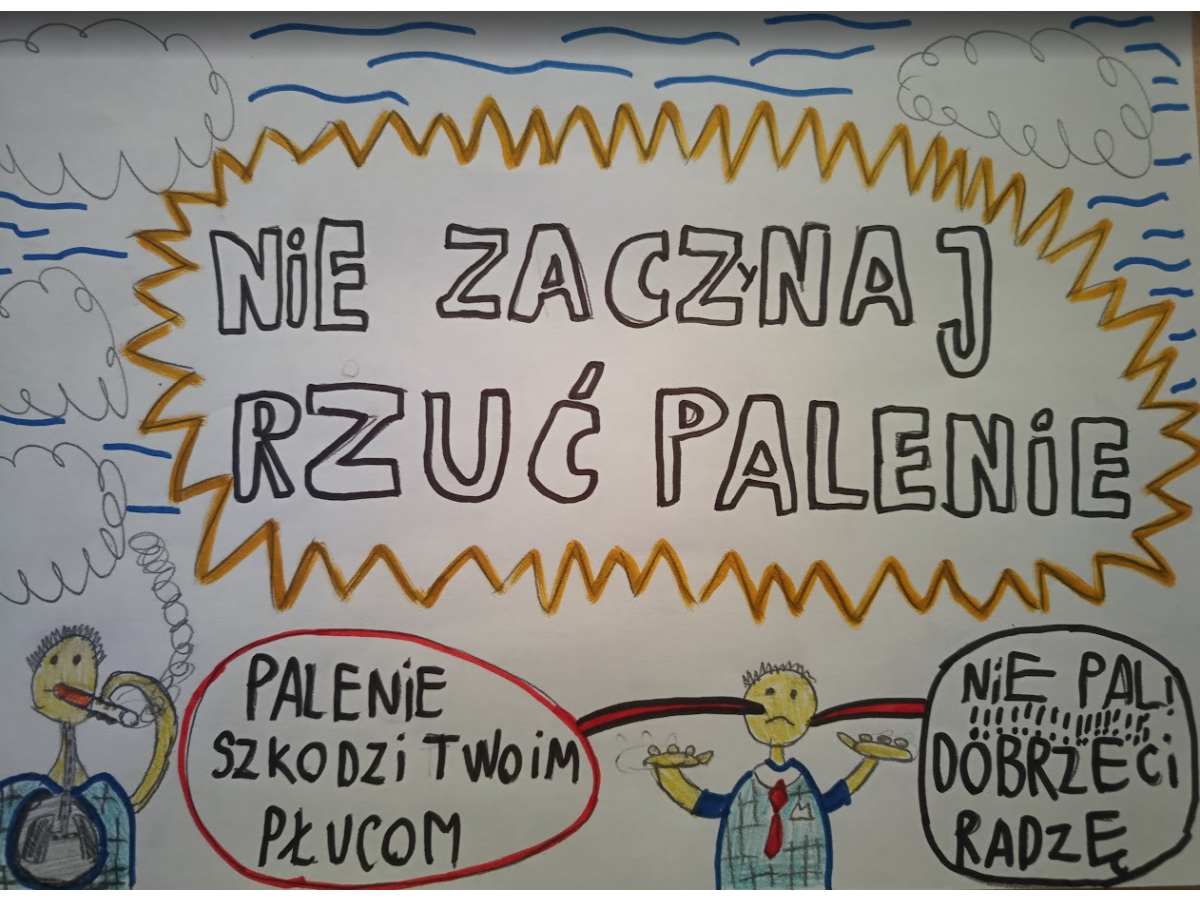 NiE ZACZyNAJ
RZUĆ PALENiE
PALENiE
SZKODZi TWOiM
PŁUCOM
NiE PAL!
DOBRZE Ci
RADZĘ